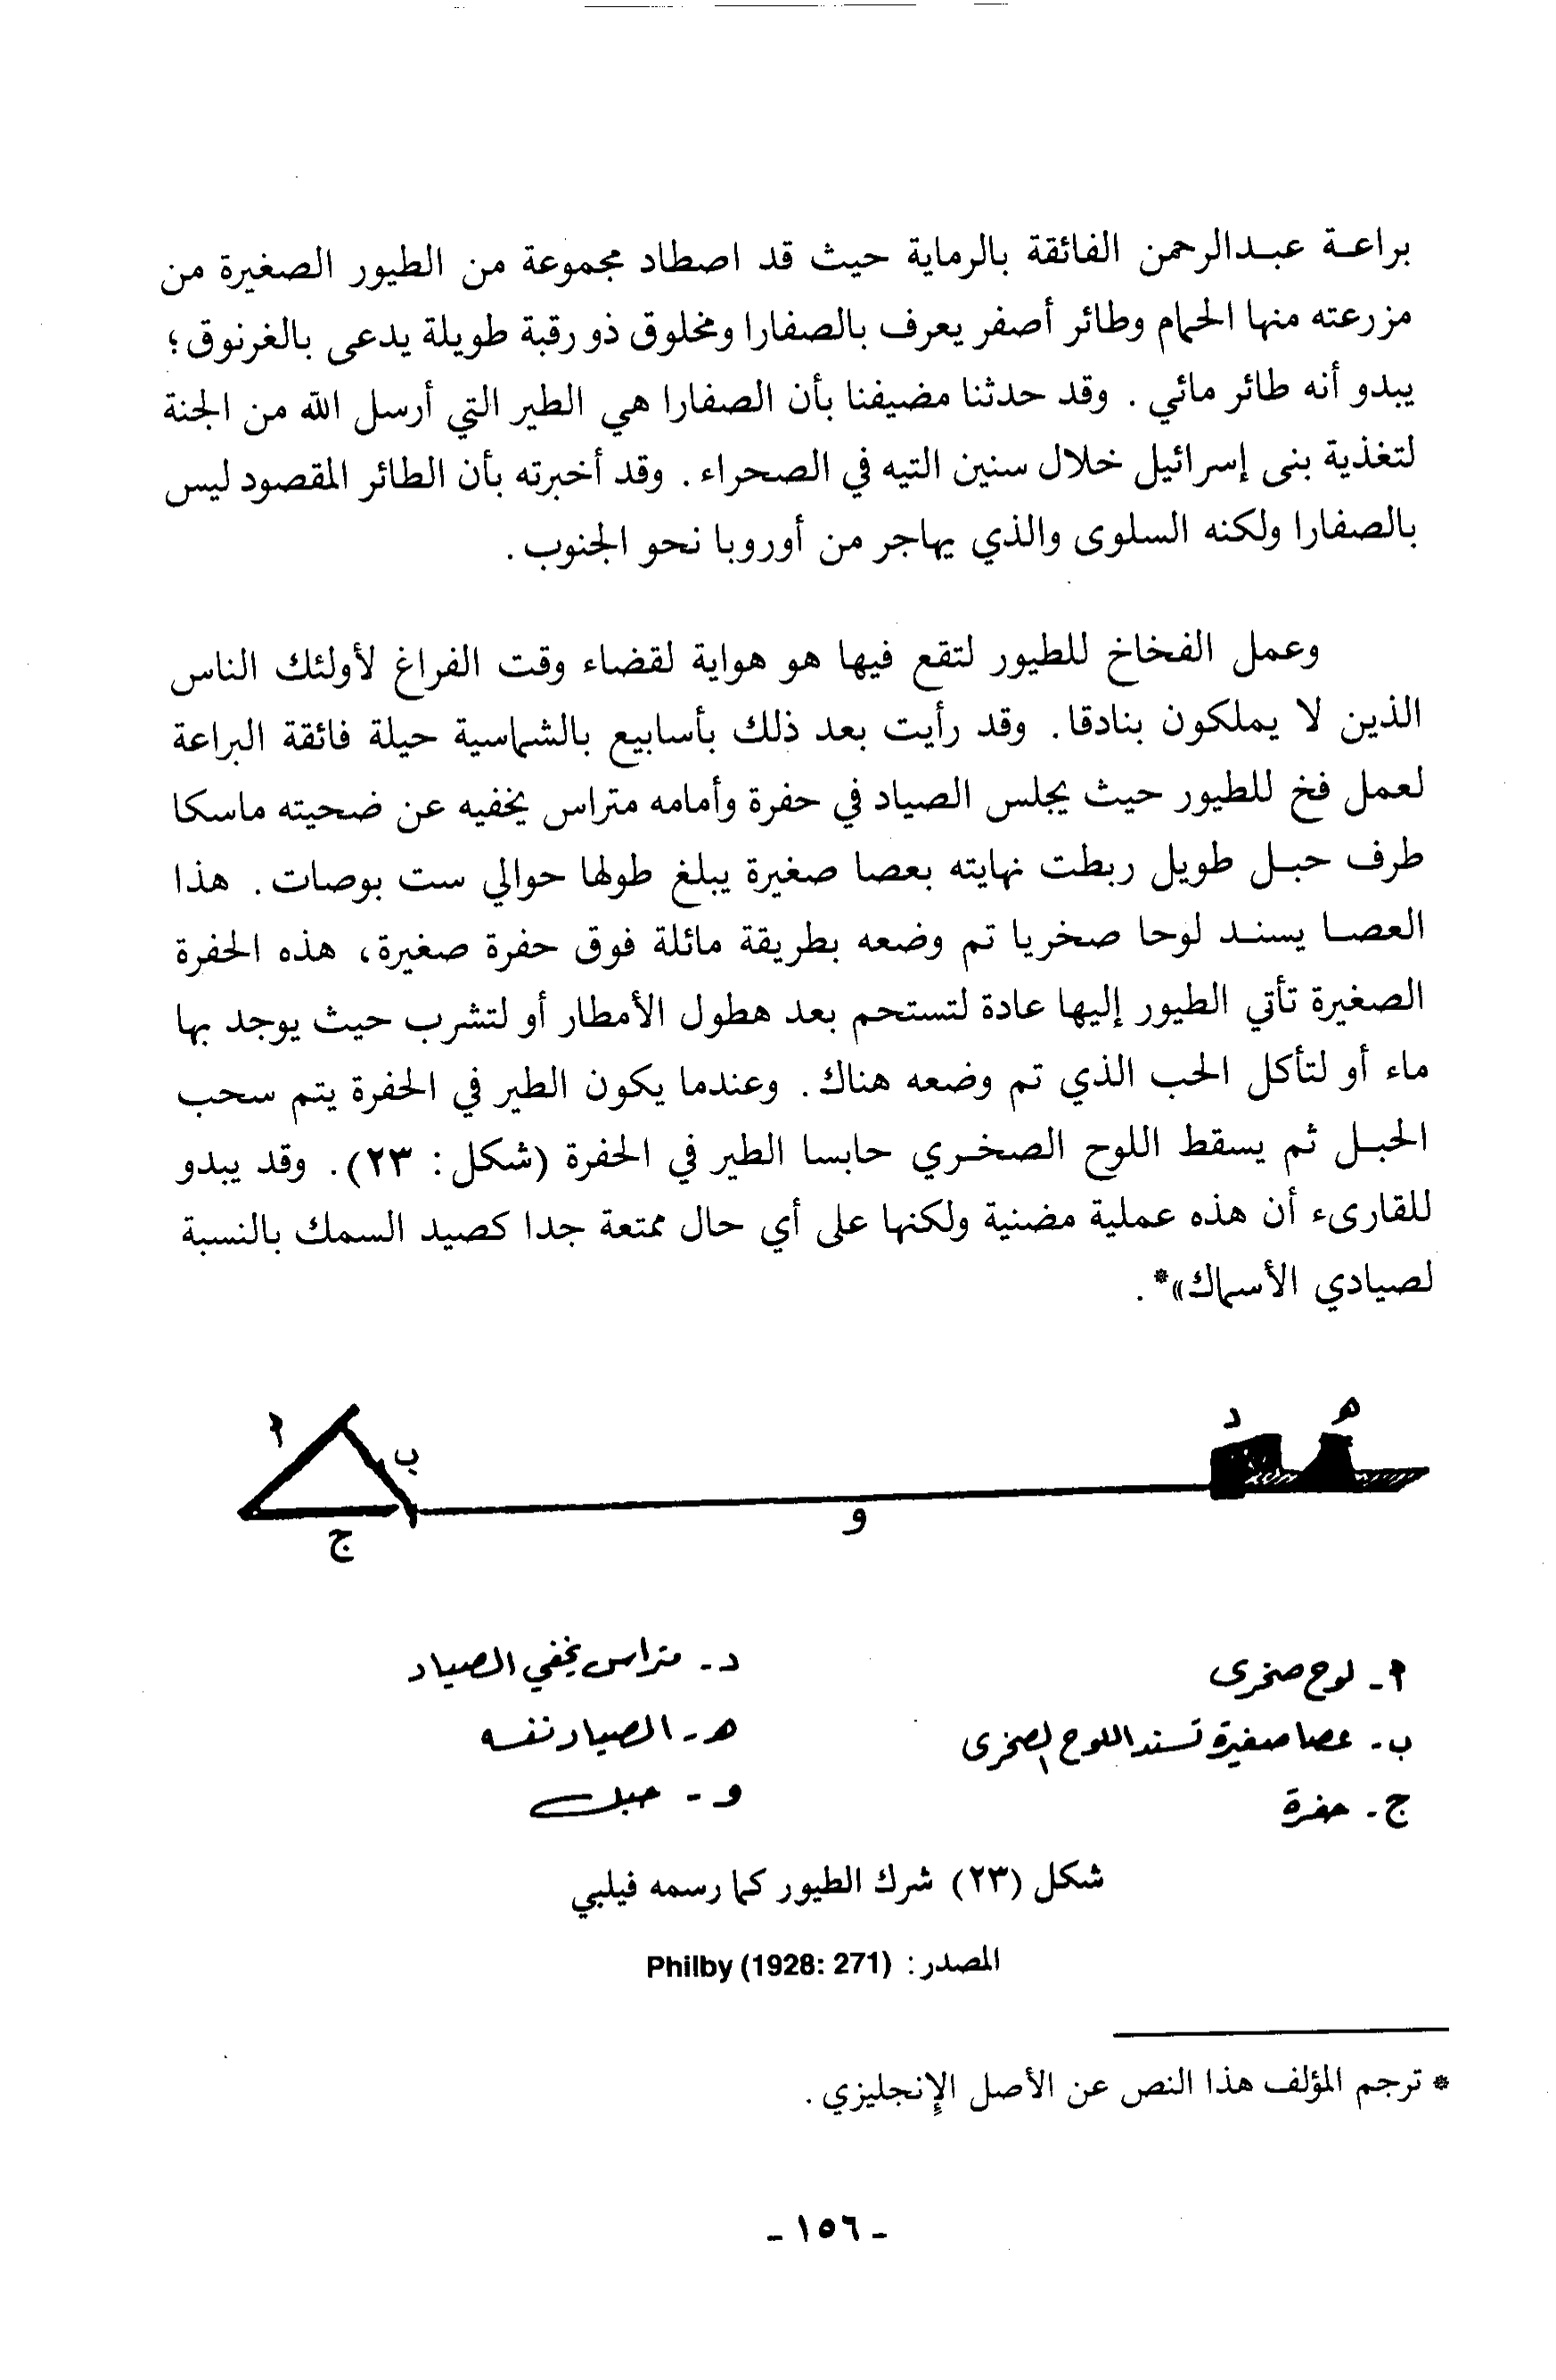 براعـة عبـدالرحمن الفائقة بالرماية حيث قد اصطاد مجموعة من الطيور الصغيرة من
مزرعته منها الحمام وطائر أصفر يعرف بالصفارا ومخلوق ذو رقبة طويلة يدعى بالغرنوق؛
يبدو أنه طائر مائي. وقد حدثنا مضيفنا بأن الصفارا هي الطير التي أرسل الله من الجنة
لتغذية بنى إسرائيل خلال سنين التيه في الصحراء. وقد أخبرته بأن الطائر المقصود ليس
بالصفارا ولكنه السلوى والذي يهاجر من أوروبا نحو الجنوب.
وعمل الفخاخ للطيور لتقع فيها هو هواية لقضاء وقت الفراغ لأولئك الناس
الذين لا يملكون بنادقا. وقد رأيت بعد ذلك بأسابيع بالشماسية حيلة فائقة البراعة
لعمل فخ للطيور حيث يجلس الصياد في حفرة وأمامه متراس يخفيه عن ضحيته ماسكا
طرف حبـل طويل ربطت نهايته بعصا صغيرة يبلغ طولها حوالي ست بوصات. هذا
العصـا يسنـد لوحا صخريا تم وضعه بطريقة مائلة فوق حفرة صغيرة، هذه الحفرة
الصغيرة تأتي الطيور إليها عادة لتستحم بعد هطول الأمطار أو لتشرب حيث يوجد بها
ماء أو لتأكل الحب الذي تم وضعه هناك. وعندما يكون الطير في الحفرة يتم سحب
الحبـل ثم يسقط اللوح الصخـري حابسا الطير في الحفرة (شكل: ٢٣). وقد يبدو
للقارىء أن هذه عملية مضنية ولكنها على أي حال ممتعة جدا كصيد السمك بالنسبة
لصيادي الأسماك»*.
أ ب ج و د هـ
أ- لوح صخرى
ب- عصا صغيرة تسند اللوح الصخرى
ج- حفرة
د- متراس يخفي الصياد
هـ- الصياد نفسه
و- حبل
شكل (٢٣) شرك الطيور كما رسمه فيلبي
المصدر: Philby (1928: 271)
* ترجم المؤلف هذا النص عن الأصل الإنجليزي.
- ١٥٦ -